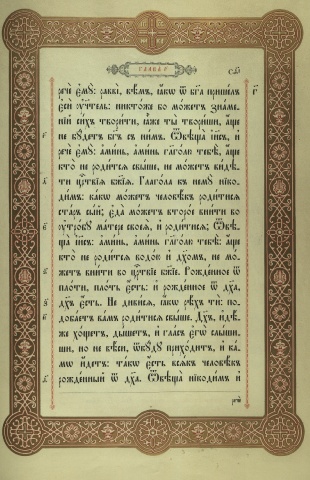 речѐ є҆мꙋ̀: раввї, вѣ́мъ, ꙗ҆́кѡ ѿ бг҃а прише́лъ
є҆сѝ ᲂу҆чт҃ель: никто́же бо мо́жетъ зна́ме-
нїй си́хъ твори́ти, ꙗ҆̀же ты̀ твори́ши, а҆́ще
не бꙋ́детъ бг҃ъ съ ни́мъ. Ѿвѣща̀ і҆и҃съ, и҆
речѐ є҆мꙋ̀: а҆ми́нь, а҆ми́нь гл҃ю тебѣ̀: а҆́ще
кто̀ не роди́тсѧ свы́ше, не мо́жетъ ви́дѣ-
ти црⷭ҇твїѧ бж҃їѧ. Глаго́ла къ немꙋ̀ нїко-
ди́мъ: ка́кѡ мо́жетъ человѣ́къ роди́тисѧ
ста́ръ сы́й; є҆да̀ мо́жетъ второ́е вни́ти во
ᲂу҆тро́бꙋ ма́тере своеѧ̀, и҆ роди́тисѧ; Ѿвѣ-
ща̀ і҆и҃съ: а҆ми́нь, а҆ми́нь гл҃ю тебѣ̀: а҆́ще
кто̀ не роди́тсѧ водо́ю и҆ дх҃омъ, не мо́-
жетъ вни́ти во црⷭ҇твїе бж҃їе. Рожде́нное ѿ
пло́ти, пло́ть є҆́сть: и҆ рожде́нное ѿ дх҃а,
дх҃ъ є҆́сть. Не диви́сѧ, ꙗ҆́кѡ рѣ́хъ тѝ: по-
доба́етъ ва́мъ роди́тисѧ свы́ше. Дх҃ъ, и҆дѣ́-
же хо́щетъ, ды́шетъ, и҆ гла́съ є҆гѡ̀ слы́ши-
ши, но не вѣ́си, ѿкꙋ́дꙋ прихо́дитъ, и҆ ка́-
мѡ и҆́детъ: та́кѡ є҆́сть всѧ́къ человѣ́къ
рожде́нный ѿ дх҃а. Ѿвѣща̀ нїкоди́мъ и҆